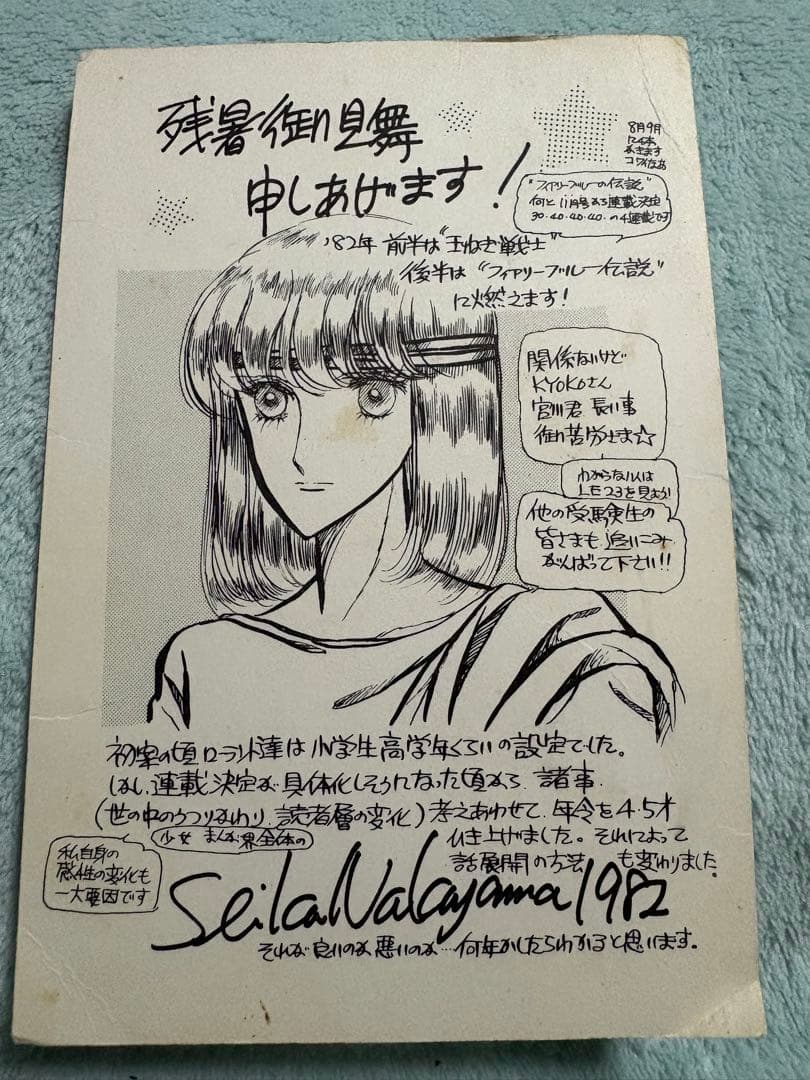 残暑御見舞
申しあげます!
8月9月
126本
かきます
コワイなあ
"フィアリーブルーの伝説"
何と11月号から連載決定
30.40.40.40.の4連載です
'82年 前半は"玉ねぎ戦士"
後半は"フィアリーブルー伝説"
に燃えます!
関係ないけど
KYOKOさん
宮川君 長い事
御苦労さま☆
わからない人は
LE23を見よう!
他の受験生の
皆さまも 追いこみ
がんばって下さい!!
初案の頃ローラント達は小学生高学年くらいの設定でした。
しかし、連載決定が具体化しそうになった頃から、諸事
(世の中のうつりかわり、読者層の変化)考えあわせて、年令を4.5才
少女まんが界全体の
ひき上げました。それによって
話展開の方法も変わりました。
私自身の
感性の変化も
一大要因です
Seika Nakayama 1982
それが良いのか悪いのか…何年かしたらわかると思います。